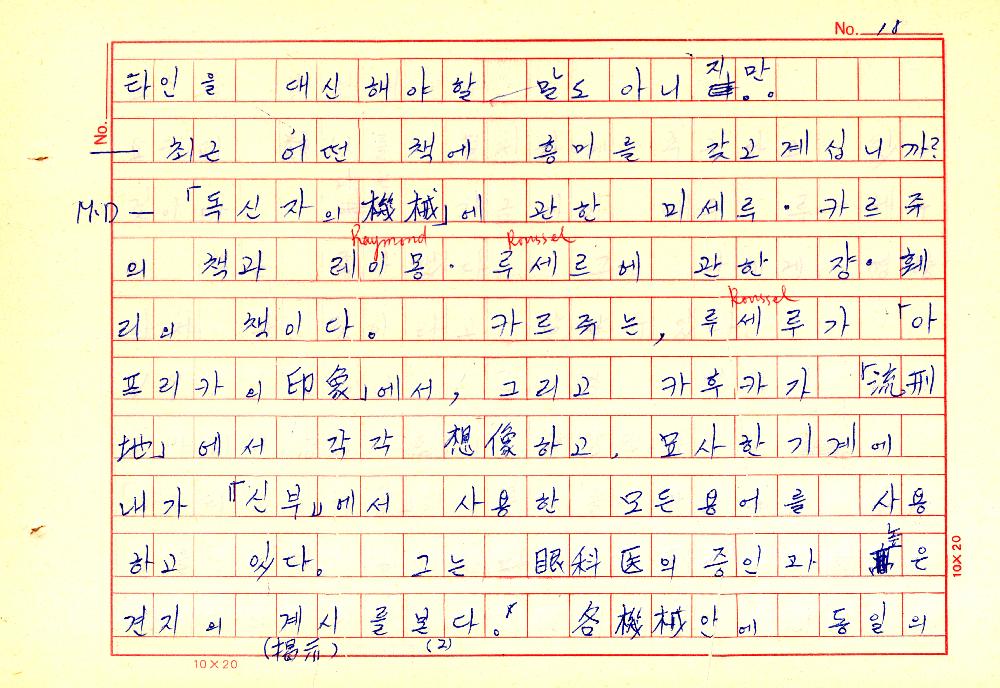 No. 18
타인을 대신해야할 말도 아니지만.
No.
― 최근 어떤 책에 흥미를 갖고계십니까?
M.D ― 「독신자의 機械」에 관한 미세르·카르쥬
의 책과 레이몽·루세르에 관한 쟝·훼
Raymond Roussel
리의 책이다. 카르쥬는, 루세루가 「아
Roussel
프리카의 印象」에서, 그리고 카후카가 「流刑
地」에서 각각 想像하고, 묘사한기계에
내가 「신부」에서 사용한 모든용어를 사용
하고 있다. 그는 眼科医의 증인과 높은
견지의 계시를본다. 各機械안에 동일의
(揭示) (2)
10×20
10×20